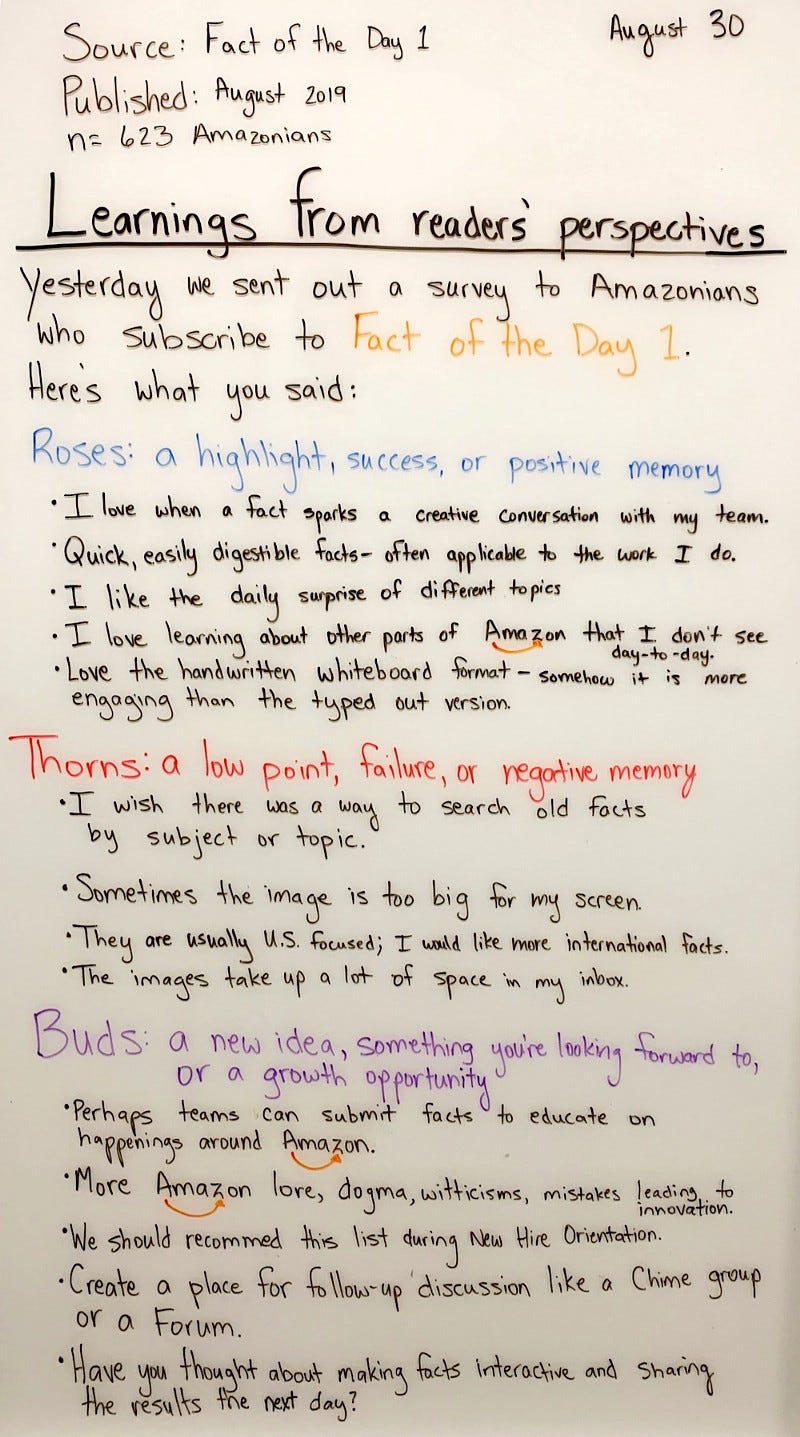 Source: Fact of the Day 1
August 30
Published: August 2019
n= 623 Amazonians
Learnings from readers' perspectives
Yesterday we sent out a survey to Amazonians
who subscribe to Fact of the Day 1.
Here's what you said:
Roses: a highlight, success, or positive memory
• I love when a fact sparks a creative conversation with my team.
• Quick, easily digestible facts- often applicable to the work I do.
• I like the daily surprise of different topics
• I love learning about other parts of Amazon that I don't see
day-to-day.
• Love the handwritten whiteboard format - somehow it is more
engaging than the typed out version.
Thorns: a low point, failure, or negative memory
• I wish there was a way to search old facts
by subject or topic.
• Sometimes the image is too big for my screen.
• They are usually U.S. focused; I would like more international facts.
• The images take up a lot of space in my inbox.
Buds: a new idea, something you're looking forward to,
or a growth opportunity
• Perhaps teams can submit facts to educate on
happenings around Amazon.
• More Amazon lore, dogma, witticisms, mistakes leading to
innovation.
• We should recommed this list during New Hire Orientation.
• Create a place for follow-up discussion like a Chime group
or a Forum.
• Have you thought about making facts interactive and sharing
the results the next day?